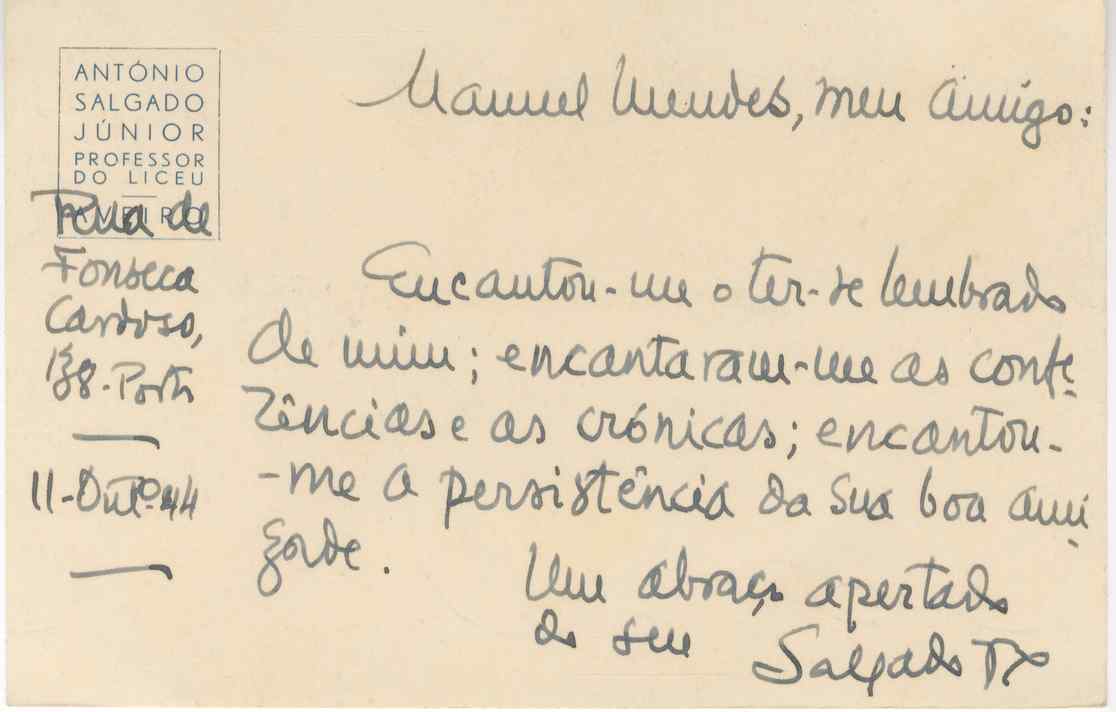 ANTÓNIO
SALGADO
JÚNIOR
PROFESSOR
DO LICEU
AVEIRO
Rua de
Fonseca
Cardoso,
138-Porto
11-Outº-44
Manuel Mendes, meu Amigo:
Encantou-me o ter-se lembrado
de mim; encantaram-me as confe-
rências e as crónicas; encantou-
-me a persistência da sua boa ami-
zade.
Um abraço apertado
do seu
Salgado Jr